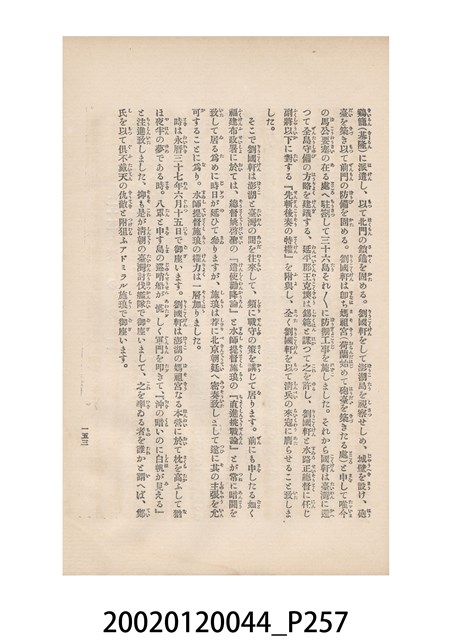 鷄籠(基隆)に派遣し、以て北門の鎖鑰を固める。劉國軒をして澎湖島を視察せしめ、城壁を設け、砲
臺を築き以て前門の防備を固める。劉國軒は卽ち媽祖宮(荷蘭始めて砲臺を築きたる處)と申して唯今
の馬公要塞の在る處へ駐劄して三十六島それ〲に防備工事を施しました。それから國軒は臺灣に還
つて全島守備の方略を建議する、延平郡王克塽は錫範と謀つて之を許し、劉國軒を水路正總督に任じ
副將以下に對する『先斬後奏の特權』を附與し、全く劉國軒を以て淸兵の來寇に膺らせること致しま
した。
そこで劉國軒は澎湖と臺灣の間を往來して、頻に戰守の策を講じて居ります。前にも申したる如く
福建布政署に於ては、總督姚啓瀅の『遣使勸降論』と水師提督施琅の『直進挑戰論』とが常に暗鬪を
致して居る爲めに時日が延びて參りますが、施琅は荐に北京朝廷へ密奏致しまして遂に其の主張を允
可することに爲り。水師提督施琅の權力は一層加りました。
時は永曆三十七年六月十五日で御座います。劉國軒は澎湖の媽祖宮なる本營に於て枕を高ふして猶
ほ夜半の夢である時。八罩と申す島の巡哨船が慌しく軍門を叩きて『沖の暗いのに白帆が見える』
と注進致しました、抑も是れ淸朝の臺灣討伐艦隊で御座いまして、之を率ゐる者を誰かと謂へば、鄭
氏を以て俱不戴天の仇敵と附狙ふアドミラル施琅で御座います。
一五三
20020120044_P257